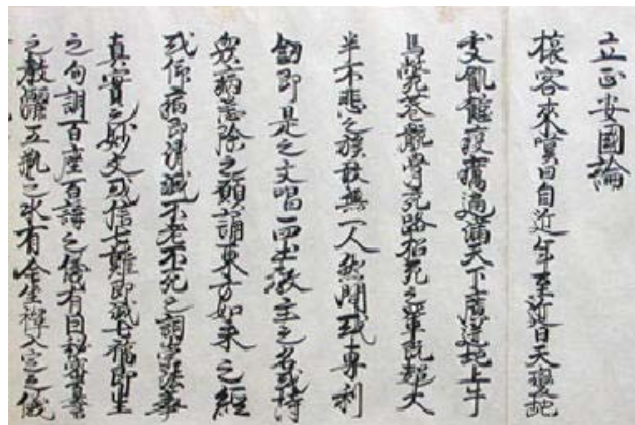 立正安國論
旅客來嘆曰自近年至近日天變地
夭飢饉疫癘遍滿天下廣迸地上牛
馬斃巷骸骨充路招死之輩既超大
半不悲之族敢無一人然間或專利
劔即是之文唱西土教主之名或恃
衆病悉除之願誦東方如來之經
或仰病即消滅不老不死之詞崇法華
真實之妙文或信七難即滅七福即生
之句調百座百講之儀有因秘密真言
之教灑五瓶之水有全坐禪入定之儀